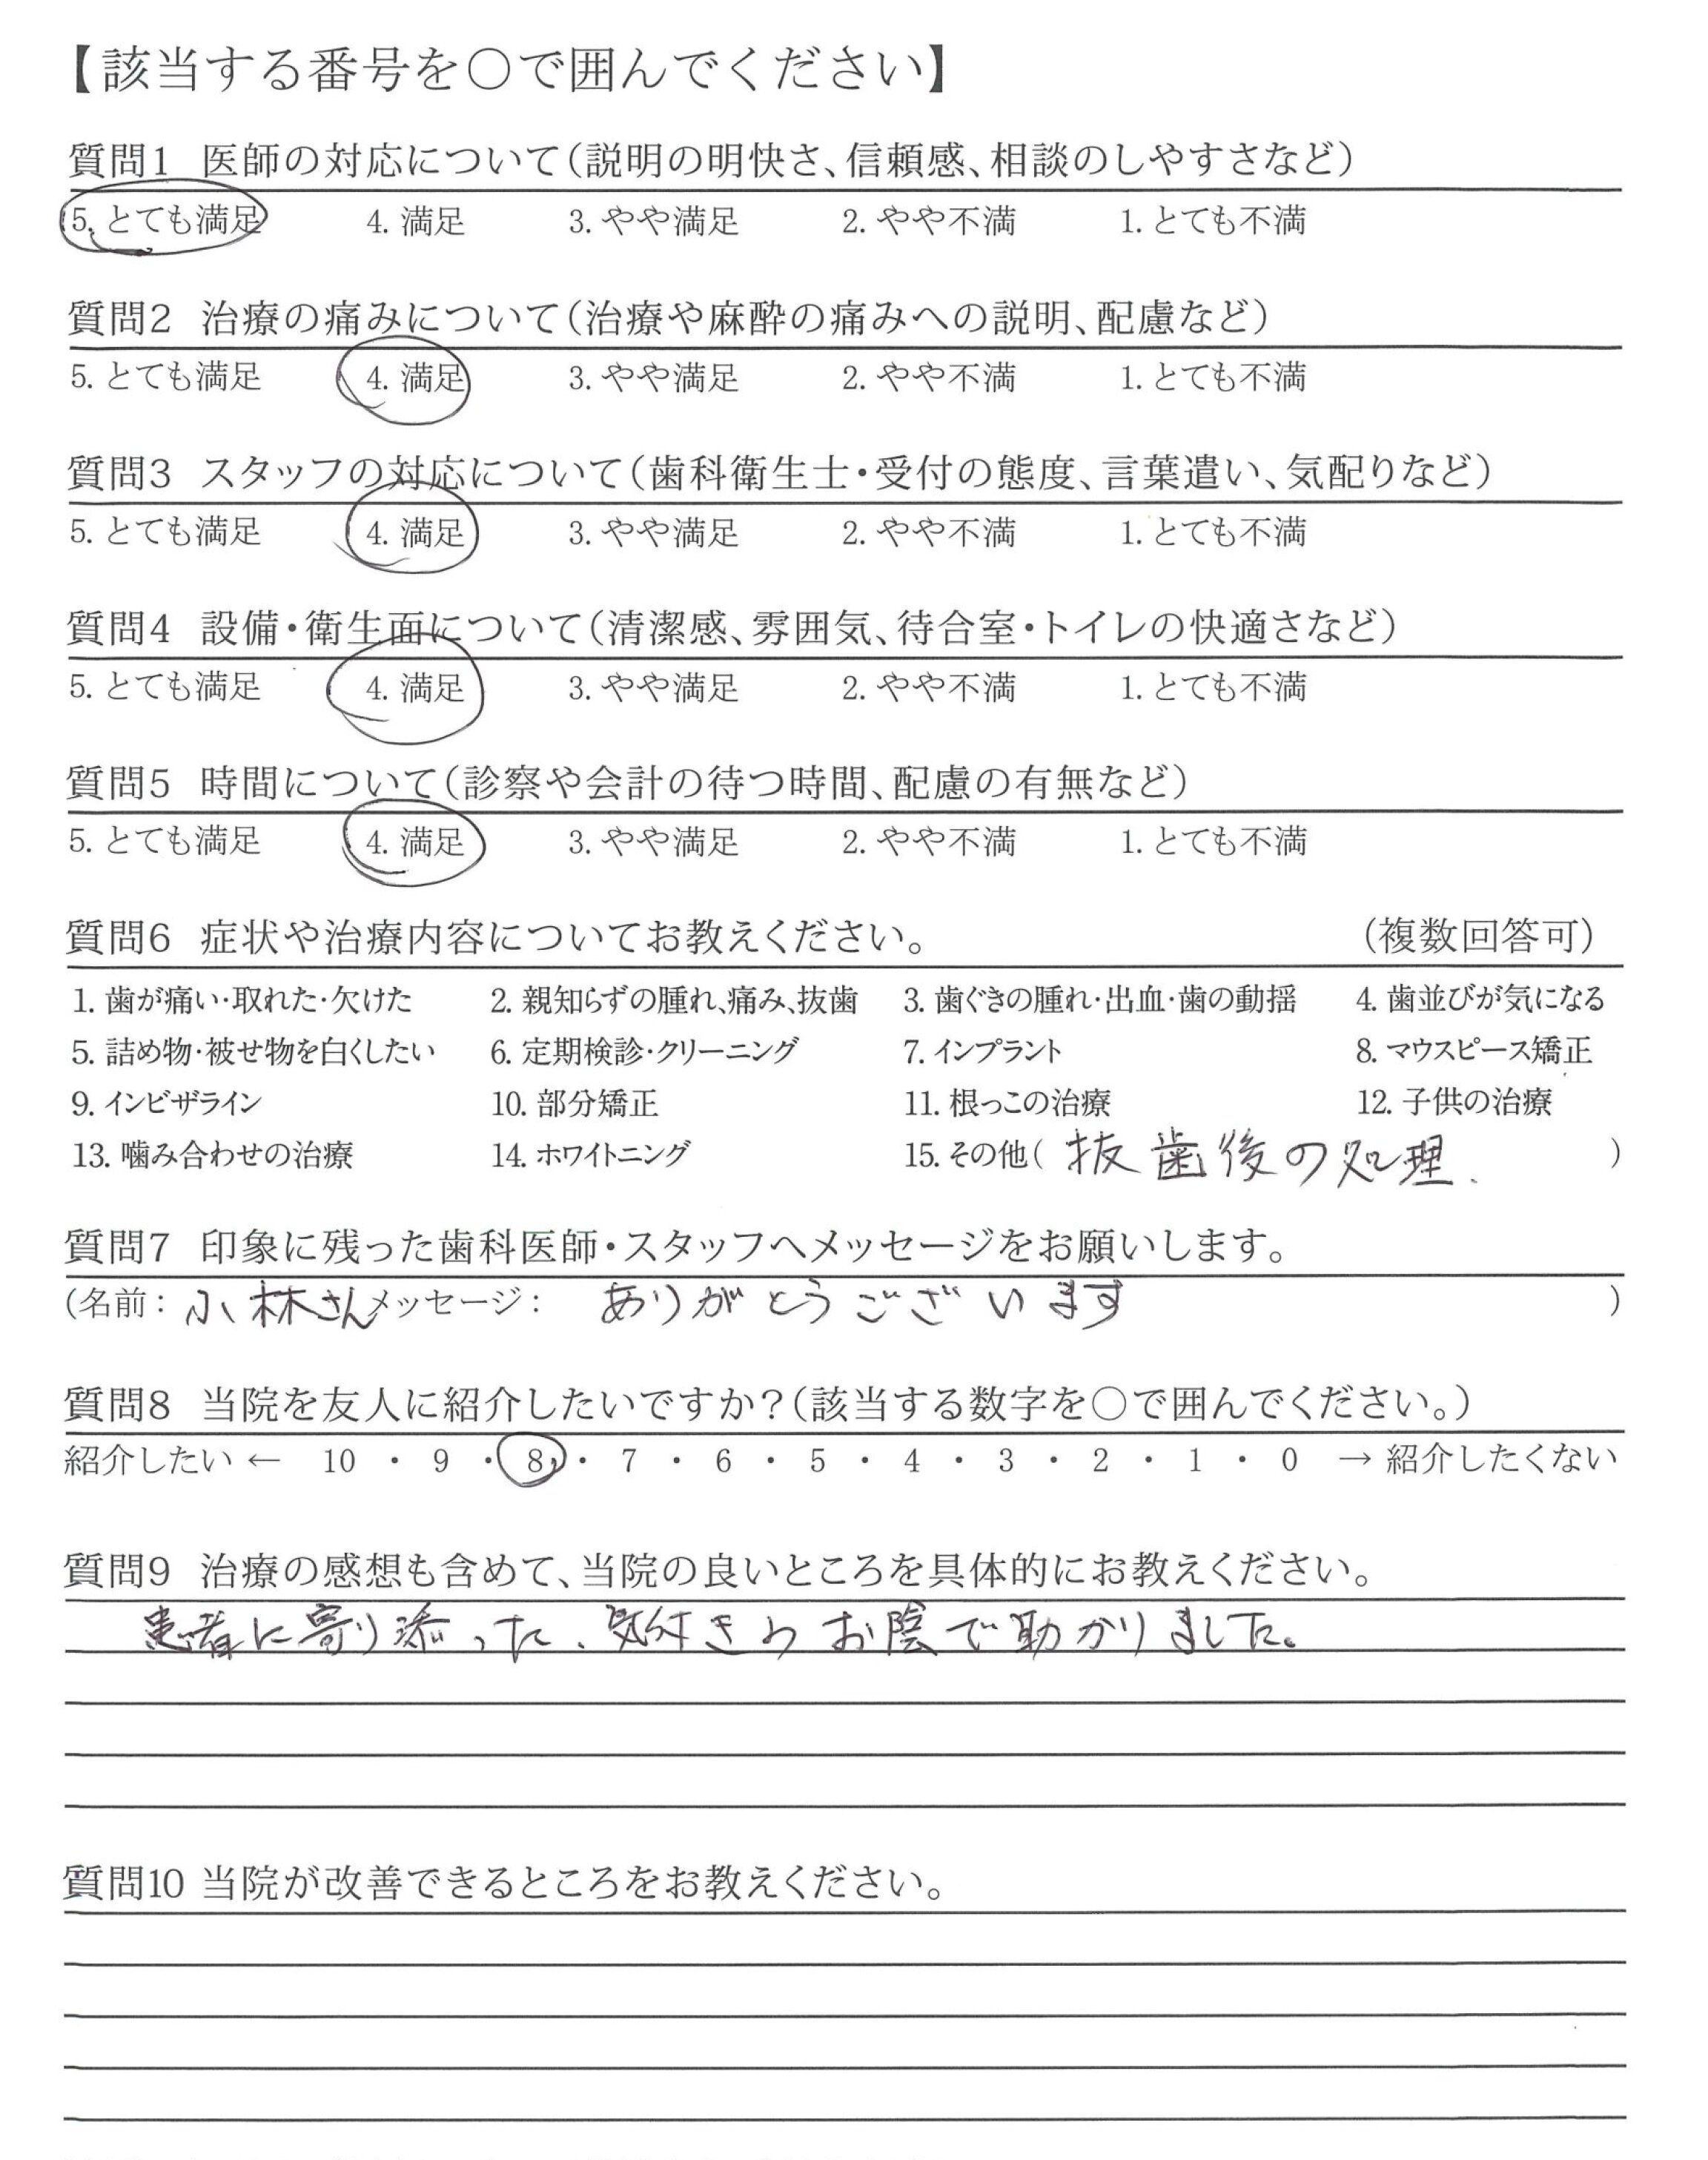 【該当する番号を○で囲んでください】
質問1 医師の対応について(説明の明快さ、信頼感、相談のしやすさなど)
5. とても満足 4. 満足 3. やや満足 2. やや不満 1. とても不満
質問2 治療の痛みについて(治療や麻酔の痛みへの説明、配慮など)
5. とても満足 4. 満足 3. やや満足 2. やや不満 1. とても不満
質問3 スタッフの対応について(歯科衛生士・受付の態度、言葉遣い、気配りなど)
5. とても満足 4. 満足 3. やや満足 2. やや不満 1. とても不満
質問4 設備・衛生面について(清潔感、雰囲気、待合室・トイレの快適さなど)
5. とても満足 4. 満足 3. やや満足 2. やや不満 1. とても不満
質問5 時間について(診察や会計の待つ時間、配慮の有無など)
5. とても満足 4. 満足 3. やや満足 2. やや不満 1. とても不満
質問6 症状や治療内容についてお教えください。 (複数回答可)
1. 歯が痛い・取れた・欠けた 2. 親知らずの腫れ、痛み、抜歯 3. 歯ぐきの腫れ・出血・歯の動揺 4. 歯並びが気になる
5. 詰め物・被せ物を白くしたい 6. 定期検診・クリーニング 7. インプラント 8. マウスピース矯正
9. インビザライン 10. 部分矯正 11. 根っこの治療 12. 子供の治療
13. 噛み合わせの治療 14. ホワイトニング 15. その他( 抜歯後の処理. )
質問7 印象に残った歯科医師・スタッフへメッセージをお願いします。
(名前: 小林さん メッセージ: ありがとうございます )
質問8 当院を友人に紹介したいですか?(該当する数字を○で囲んでください。)
紹介したい ← 10 ・ 9 ・ 8 ・ 7 ・ 6 ・ 5 ・ 4 ・ 3 ・ 2 ・ 1 ・ 0 → 紹介したくない
質問9 治療の感想も含めて、当院の良いところを具体的にお教えください。
患者に寄り添った、気付きの お陰で助かりました。
質問10 当院が改善できるところをお教えください。